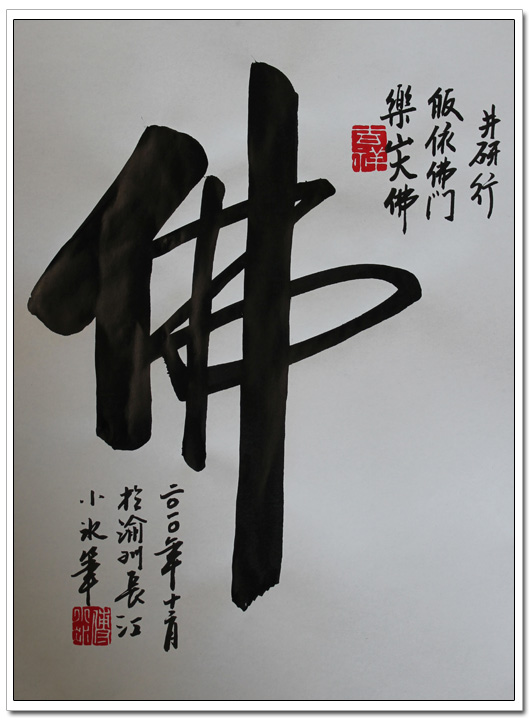 井研行
皈依佛门
樂山大佛
吉祥
佛
二〇一〇年十二月
於渝州長江
小冰筆